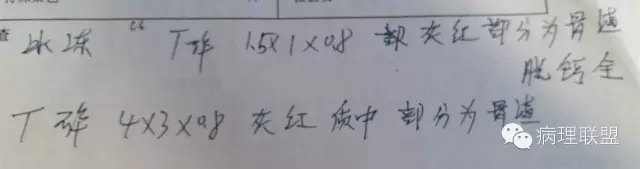 查 冰冻 “ T碎 1.5×1×0.8 灰红 部分为骨质
脱钙全
T碎 4×3×0.8 灰红 质中 部分为骨质
病理联盟